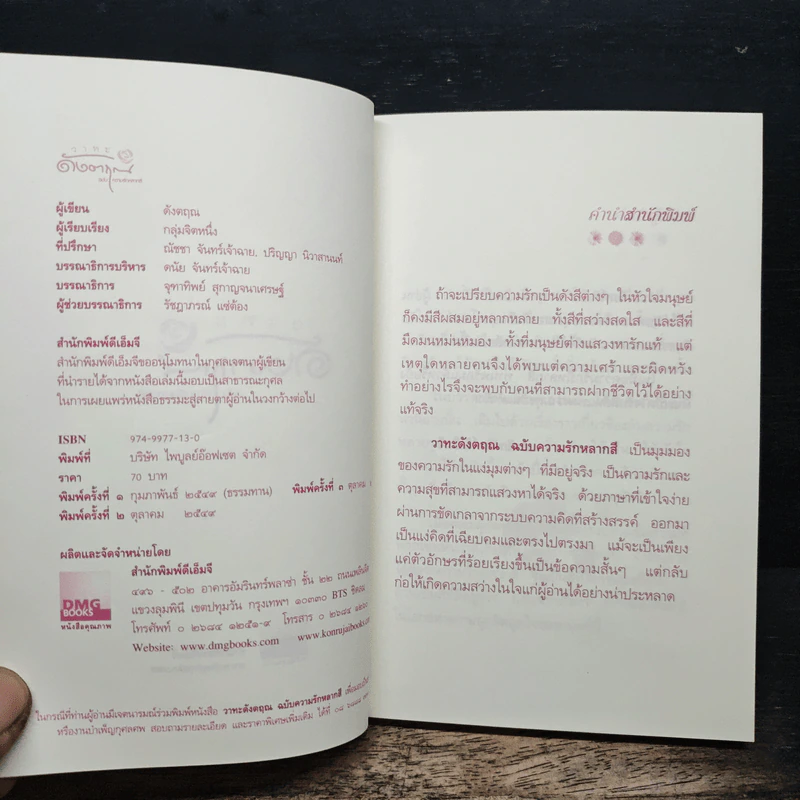 วาทะ
ดังตฤณ
ผู้เขียน ดังตฤณ
ผู้เรียบเรียง กลุ่มจิตหนึ่ง
ที่ปรึกษา ณัชชา จันทร์เจ้าฉาย, ปริญญา นิวาสานนท์
บรรณาธิการบริหาร ดนัย จันทร์เจ้าฉาย
บรรณาธิการ จุฑาทิพย์ สุกาญจนาเศรษฐ์
ผู้ช่วยบรรณาธิการ รัชฎาภรณ์ แซ่ต้อง
สำนักพิมพ์ดีเอ็มจี
สำนักพิมพ์ดีเอ็มจีขออนุโมทนาในกุศลเจตนาผู้เขียน
ที่นำรายได้จากหนังสือเล่มนี้มอบเป็นสาธารณะกุศล
ในการเผยแพร่หนังสือธรรมะสู่สายตาผู้อ่านในวงกว้างต่อไป
ISBN 974-9977-13-0
พิมพ์ที่ บริษัท ไพบูลย์อ๊อฟเซต จำกัด
ราคา 70 บาท
พิมพ์ครั้งที่ ๑ กุมภาพันธ์ ๒๕๔๙ (ธรรมทาน) พิมพ์ครั้งที่ ๓ ตุลาคม
พิมพ์ครั้งที่ ๒ ตุลาคม ๒๕๔๙
ผลิตและจัดจำหน่ายโดย
สำนักพิมพ์ดีเอ็มจี
๔๙๖ - ๕๐๒ อาคารอัมรินทร์พลาซ่า ชั้น ๒๒ ถนนเพลินจิต
แขวงลุมพินี เขตปทุมวัน กรุงเทพฯ ๑๐๓๓๐ BTS ชิดลม
โทรศัพท์ ๐ ๒๖๘๔ ๑๒๕๑-๙ โทรสาร ๐ ๒๖๘๔
Website: www.dmgbooks.com www.konrujaibooks.com
DMG
BOOKS
หนังสือคุณภาพ
ในกรณีที่ท่านผู้อ่านมีเจตนารมณ์ร่วมพิมพ์หนังสือ วาทะดังตฤณ ฉบับความรักหลากสี
หรืองานบำเพ็ญกุศลศพ สอบถามรายละเอียด และราคาพิเศษเพิ่มเติม ได้ที่
คำนำสำนักพิมพ์
ถ้าจะเปรียบความรักเป็นดังสีต่างๆ ในหัวใจมนุษย์
ก็คงมีสีผสมอยู่หลากหลาย ทั้งสีที่สว่างสดใส และสีที่
มืดมนหม่นหมอง ทั้งที่มนุษย์ต่างแสวงหารักแท้ แต่
เหตุใดหลายคนจึงได้พบแต่ความเศร้าและผิดหวัง
ทำอย่างไรจึงจะพบกับคนที่สามารถฝากชีวิตไว้ได้อย่าง
แท้จริง
วาทะดังตฤณ ฉบับความรักหลากสี เป็นมุมมอง
ของความรักในแง่มุมต่างๆ ที่มีอยู่จริง เป็นความรักและ
ความสุขที่สามารถแสวงหาได้จริง ด้วยภาษาที่เข้าใจง่าย
ผ่านการขัดเกลาจากระบบความคิดที่สร้างสรรค์ ออกมา
เป็นแง่คิดที่เฉียบคมและตรงไปตรงมา แม้จะเป็นเพียง
แค่ตัวอักษรที่ร้อยเรียงขึ้นเป็นข้อความสั้นๆ แต่กลับ
ก่อให้เกิดความสว่างในใจแก่ผู้อ่านได้อย่างน่าประหลาด